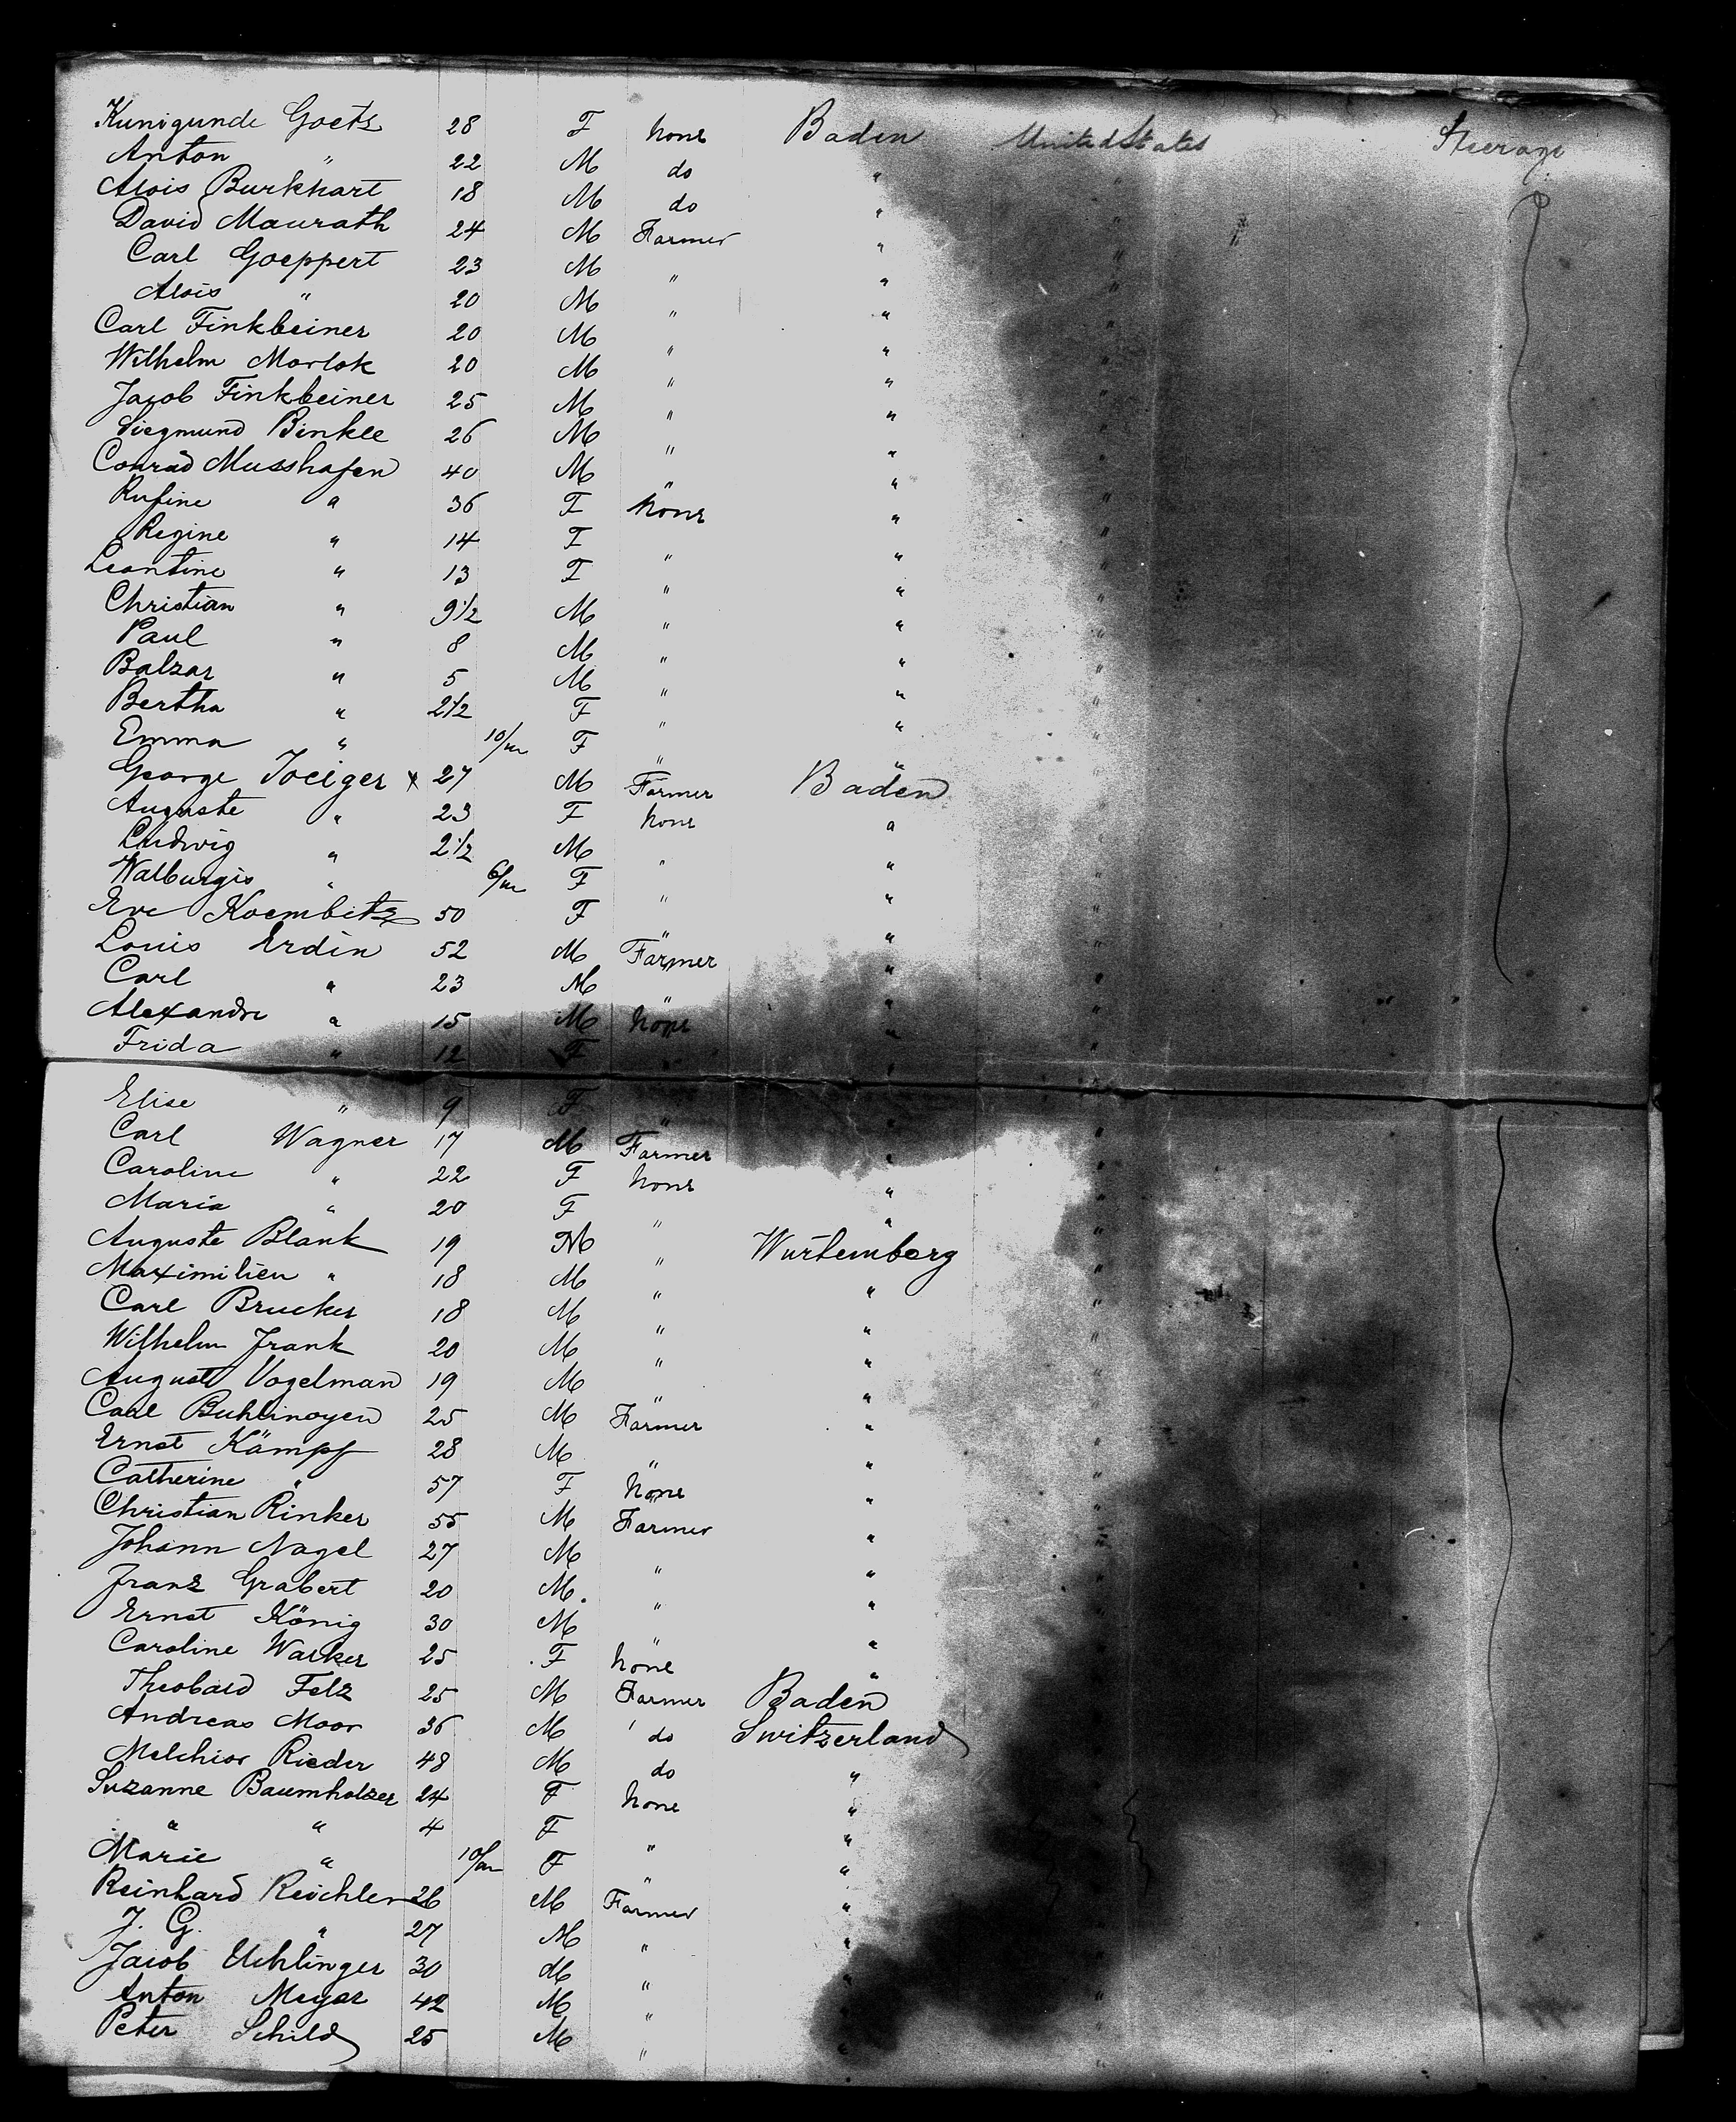 Kunigunde Goetz 28 F none Baden United States Steerage
Anton " 22 M do " "
Alois Burkhart 18 M do " "
David Maurath 24 M Farmer " "
Carl Goeppert 23 M " " "
Alois " 20 M " " "
Carl Finkbeiner 20 M " " "
Wilhelm Morlok 20 M " " "
Jacob Finkbeiner 25 M " " "
Siegmund Binkle 26 M " " "
Conrad Musshafen 40 M " " "
Rufine " 36 F none " "
Regine " 14 F " " "
Leontine " 13 F " " "
Christian " 9 1/2 M " " "
Paul " 8 M " " "
Balzar " 5 M " " "
Bertha " 2 1/2 F " " "
Emma " 10/m F " " "
George Joeiger x 27 M Farmer Baden "
Auguste " 23 F none " "
Ludwig " 2 1/2 M " " "
Walburgis " 6/m F " " "
Eve Koembetz 50 F " " "
Louis Erdin 52 M Farmer " "
Carl " 23 M " " "
Alexandre " 15 M none " "
Frida " 12 F " " "
Elise " 9 F " " "
Carl Wagner 17 M Farmer " "
Caroline " 22 F none " "
Maria " 20 F " " "
Auguste Blank 19 M " Wurtemberg "
Maximilien " 18 M " " "
Carl Brucker 18 M " " "
Wilhelm Frank 20 M " " "
Auguste Vogelman 19 M " " "
Carl Buhlinoyen 25 M Farmer " "
Ernst Kämpf 28 M " " "
Catherine " 57 F none " "
Christian Rinker 55 M Farmer " "
Johann Nagel 27 M " " "
Franz Grabert 20 M. " " "
Ernst König 30 M " " "
Caroline Warker 25 F none " "
Theobald Felz 25 M Farmer Baden "
Andreas Moor 36 M do Switzerland "
Melchior Rieder 48 M do " "
Suzanne Baumholzer 24 F none " "
" " 4 F " " "
Marie " 10/m F " " "
Reinhard Reichlen 26 M Farmer " "
J. G. " 27 M " " "
Jacob Uehlinger 30 M " " "
Anton Meyer 42 M " " "
Peter Schild 25 M " " "